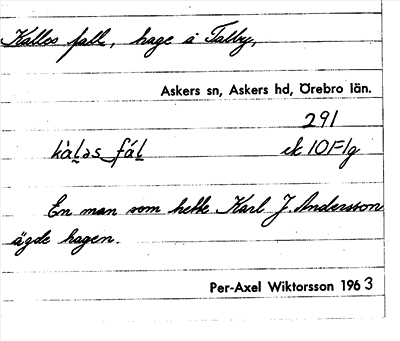 Kalles fall, hage å Talby,
Askers sn, Askers hd, Örebro län.
291
kàl̠əs fál̠ ek 10F1g
En man som hette Karl J. Andersson
ägde hagen.
Per-Axel Wiktorsson 1963